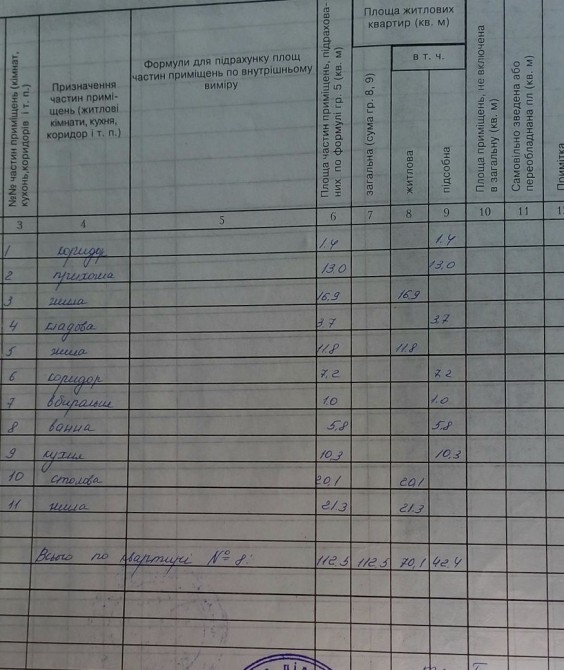 №№ частин приміщень (кімнат, кухонь, коридорів і т. п.)
Призначення частин примі-
щень (житлові кімнати, кухня, коридор і т. п.)
Формули для підрахунку площ
частин приміщень по внутрішньому
виміру
Площа частин приміщень, підрахова-
них по формулі гр. 5 (кв. м)
Площа житлових
квартир (кв. м)
загальна (сума гр. 8, 9)
в т. ч.
житлова
підсобна
Площа приміщень, не включена
в загальну (кв. м)
Самовільно зведена або
переобладнана пл (кв. м)
Примітка
3 4 5 6 7 8 9 10 11
1 коридор 1.4 1.4
2 прихожа 13.0 13.0
3 жила 16.9 16.9
4 кладова 3.7 3.7
5 жила 11.8 11.8
6 коридор 7.2 7.2
7 вбиральня 1.0 1.0
8 ванна 5.8 5.8
9 кухня 10.3 10.3
10 столова 20,1 20,1
11 жила 21.3 21.3
Всього по квартирі № 8: 112.5 112.5 70,1 42.4